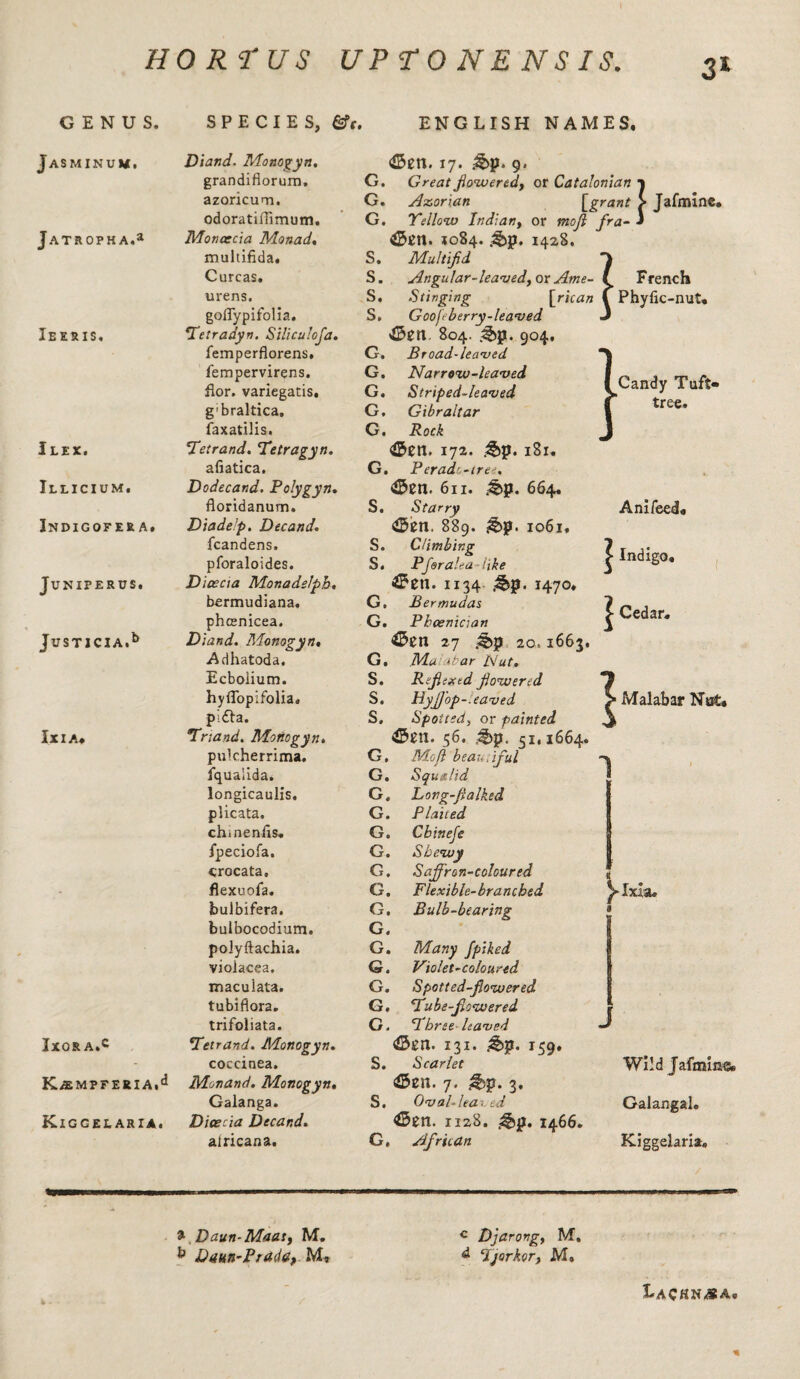 HORTUS UPTONENSIS. 31
GENUS. SPECIES, &c. ENGLISH NAMES.
JASMINUM. Diand. Monogyn. Gen. 17. Sp. 9.
grandiflorum. G. Great flowered, or Catalonian } Jaſmine.
azoricum. G. Azorian [grant
odoratiſſimum. G. Yellow Indian, or moſt fra-
JATROPHA.ª Monœcia Monad. Gen. 1084. Sp. 1428.
multifida. S. Multifid } French Phyſic-nut.
Curcas. S. Angular-leaved, or Ame-
urens. S. Stinging [rican
goſſypifolia. S. Gooſeberry-leaved
IBERIS. Tetradyn. Siliculoſa. Gen. 804. Sp. 904.
ſemperflorens. G. Broad-leaved } Candy Tuft-tree.
ſempervirens. G. Narrow-leaved
flor. variegatis. G. Striped-leaved
gibraltica. G. Gibraltar
ſaxatilis. G. Rock
ILEX. Tetrand. Tetragyn. Gen. 172. Sp. 181.
aſiatica. G. Perado-tree.
ILLICIUM. Dodecand. Polygyn. Gen. 611. Sp. 664.
floridanum. S. Starry Aniſeed.
INDIGOFERA. Diadelp. Decand. Gen. 889. Sp. 1061.
ſcandens. S. Climbing } Indigo.
pſoraloides. S. Pſoralea-like
JUNIPERUS. Diœcia Monadelph. Gen. 1134 Sp. 1470.
bermudiana. G. Bermudas } Cedar.
phœnicea. G. Phœnician
JUSTICIA.ᵇ Diand. Monogyn. Gen 27 Sp 20. 1663.
Adhatoda. G. Malabar Nut.
Ecbolium. S. Reflexed flowered } Malabar Nut.
hyſſopifolia. S. Hyſſop-leaved
picta. S. Spotted, or painted
IXIA. Triand. Monogyn. Gen. 56. Sp. 51. 1664.
pulcherrima. G. Moſt beautiful } Ixia.
ſqualida. G. Squalid
longicaulis. G. Long-ſtalked
plicata. G. Plaited
chinenſis. G. Chineſe
ſpecioſa. G. Shewy
crocata. G. Saffron-coloured
flexuoſa. G. Flexible-branched
bulbifera. G. Bulb-bearing
bulbocodium. G.
polyſtachia. G. Many ſpiked
violacea. G. Violet-coloured
maculata. G. Spotted-flowered
tubiflora. G. Tube-flowered
trifoliata. G. Three-leaved
IXORA.ᶜ Tetrand. Monogyn. Gen. 131. Sp. 159.
coccinea. S. Scarlet Wild Jaſmine.
KÆMPFERIA.ᵈ Monand. Monogyn. Gen. 7. Sp. 3.
Galanga. S. Oval-leaved Galangal.
KIGGELARIA. Diœcia Decand. Gen. 1128. Sp. 1466.
africana. G. African Kiggelaria.
ª Daun-Maas, M. ᶜ Djarong, M.
ᵇ Daun-Prada, M. ᵈ Tjorkor, M.
LACHNÆA.